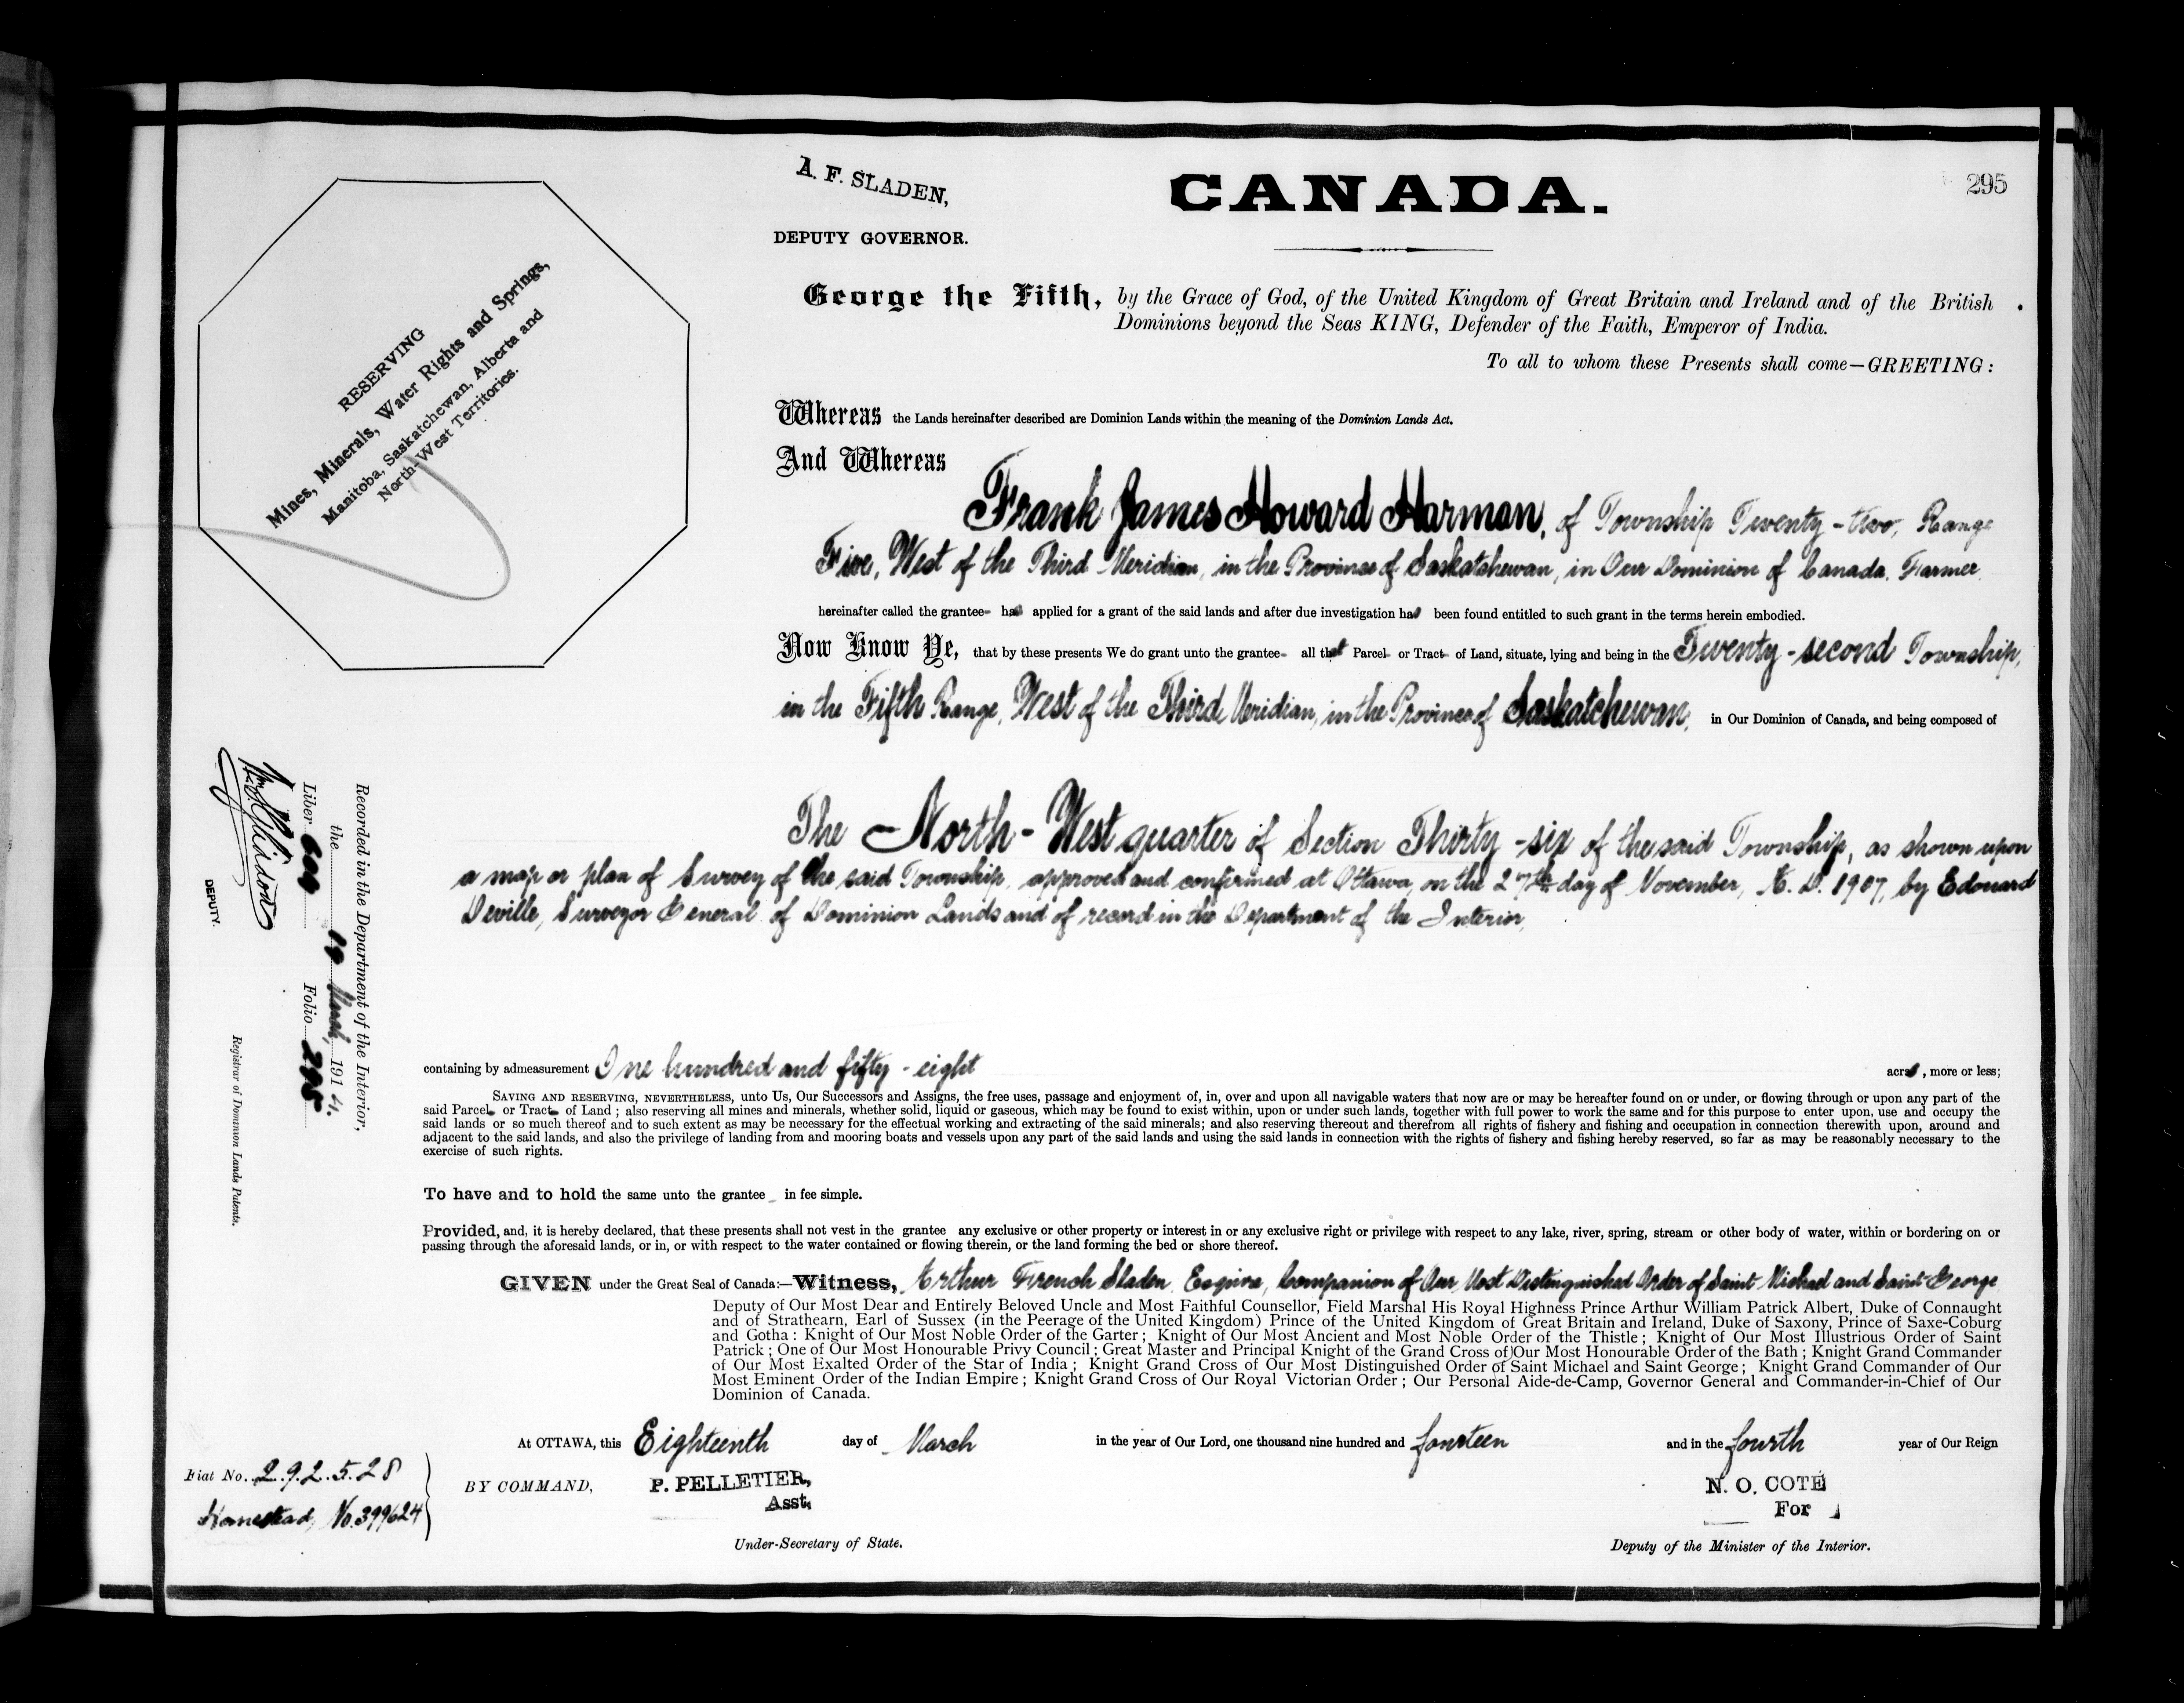 295
A. F. SLADEN,
DEPUTY GOVERNOR.
CANADA.
RESERVING
Mines, Minerals, Water Rights and Springs,
Manitoba, Saskatchewan, Alberta and
North-West Territories.
George the Fifth, by the Grace of God, of the United Kingdom of Great Britain and Ireland and of the British
Dominions beyond the Seas KING, Defender of the Faith, Emperor of India.
To all to whom these Presents shall come—GREETING:
Whereas the Lands hereinafter described are Dominion Lands within the meaning of the Dominion Lands Act.
And Whereas
Frank James Howard Harman, of Township Twenty-two, Range
Five, West of the Third Meridian, in the Province of Saskatchewan, in Our Dominion of Canada, Farmer
hereinafter called the grantee- has applied for a grant of the said lands and after due investigation has been found entitled to such grant in the terms herein embodied.
Now Know Ye, that by these presents We do grant unto the grantee- all that Parcel- or Tract- of Land, situate, lying and being in the Twenty-second Township,
in the Fifth Range, West of the Third Meridian, in the Province of Saskatchewan, in Our Dominion of Canada, and being composed of
The North-West quarter of Section Thirty-six of the said Township, as shown upon
a map or plan of Survey of the said Township, approved and confirmed at Ottawa, on the 27th day of November, A. D. 1907, by Edouard
Deville, Surveyor General of Dominion Lands and of record in the Department of the Interior,
containing by admeasurement One hundred and fifty-eight acres, more or less;
SAVING AND RESERVING, NEVERTHELESS, unto Us, Our Successors and Assigns, the free uses, passage and enjoyment of, in, over and upon all navigable waters that now are or may be hereafter found on or under, or flowing through or upon any part of the
said Parcel- or Tract- of Land; also reserving all mines and minerals, whether solid, liquid or gaseous, which may be found to exist within, upon or under such lands, together with full power to work the same and for this purpose to enter upon, use and occupy the
said lands or so much thereof and to such extent as may be necessary for the effectual working and extracting of the said minerals; and also reserving thereout and therefrom all rights of fishery and fishing and occupation in connection therewith upon, around and
adjacent to the said lands, and also the privilege of landing from and mooring boats and vessels upon any part of the said lands and using the said lands in connection with the rights of fishery and fishing hereby reserved, so far as may be reasonably necessary to the
exercise of such rights.
To have and to hold the same unto the grantee in fee simple.
Provided, and, it is hereby declared, that these presents shall not vest in the grantee any exclusive or other property or interest in or any exclusive right or privilege with respect to any lake, river, spring, stream or other body of water, within or bordering on or
passing through the aforesaid lands, or in, or with respect to the water contained or flowing therein, or the land forming the bed or shore thereof.
GIVEN under the Great Seal of Canada:—Witness, Arthur French Sladen, Esquire, Companion of Our Most Distinguished Order of Saint Michael and Saint George
Deputy of Our Most Dear and Entirely Beloved Uncle and Most Faithful Counsellor, Field Marshal His Royal Highness Prince Arthur William Patrick Albert, Duke of Connaught
and of Strathearn, Earl of Sussex (in the Peerage of the United Kingdom) Prince of the United Kingdom of Great Britain and Ireland, Duke of Saxony, Prince of Saxe-Coburg
and Gotha: Knight of Our Most Noble Order of the Garter; Knight of Our Most Ancient and Most Noble Order of the Thistle; Knight of Our Most Illustrious Order of Saint
Patrick; One of Our Most Honourable Privy Council; Great Master and Principal Knight of the Grand Cross of Our Most Honourable Order of the Bath; Knight Grand Commander
of Our Most Exalted Order of the Star of India; Knight Grand Cross of Our Most Distinguished Order of Saint Michael and Saint George; Knight Grand Commander of Our
Most Eminent Order of the Indian Empire; Knight Grand Cross of Our Royal Victorian Order; Our Personal Aide-de-Camp, Governor General and Commander-in-Chief of Our
Dominion of Canada.
At OTTAWA, this Eighteenth day of March in the year of Our Lord, one thousand nine hundred and fourteen and in the fourth year of Our Reign
BY COMMAND,
P. PELLETIER,
Asst.
Under-Secretary of State.
N. O. COTÉ
For
Deputy of the Minister of the Interior.
Recorded in the Department of the Interior,
the 19 March, 1914.
Liber 609 Folio 295
DEPUTY.
Registrar of Dominion Lands Patents.
Fiat No. 292528
Homestead, No. 399624